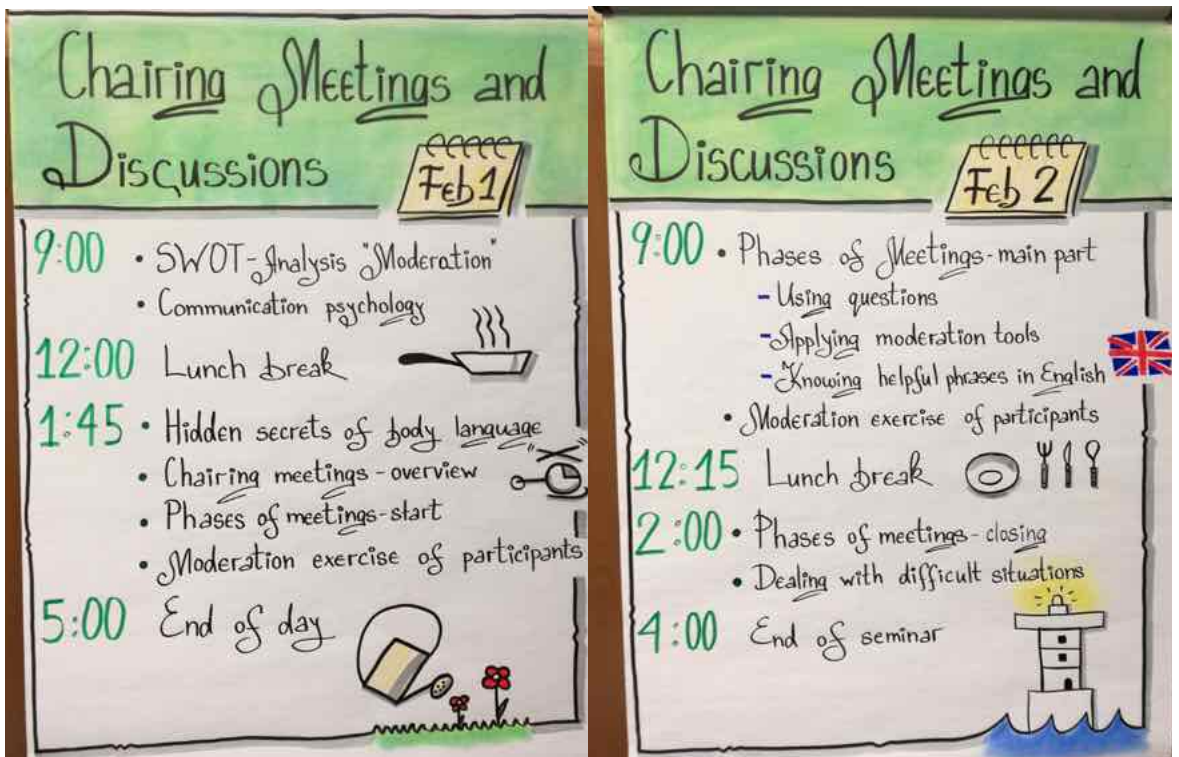 Chairing Meetings and
Discussions
Feb 1
9:00 • SWOT-Analysis "Moderation"
• Communication psychology
12:00 Lunch break
1:45 • Hidden secrets of body language
• Chairing meetings - overview
• Phases of meetings - start
• Moderation exercise of participants
5:00 End of day
Chairing Meetings and
Discussions
Feb 2
9:00 • Phases of Meetings - main part
- Using questions
- Applying moderation tools
- Knowing helpful phrases in English
• Moderation exercise of participants
12:15 Lunch break
2:00 • Phases of meetings - closing
• Dealing with difficult situations
4:00 End of seminar